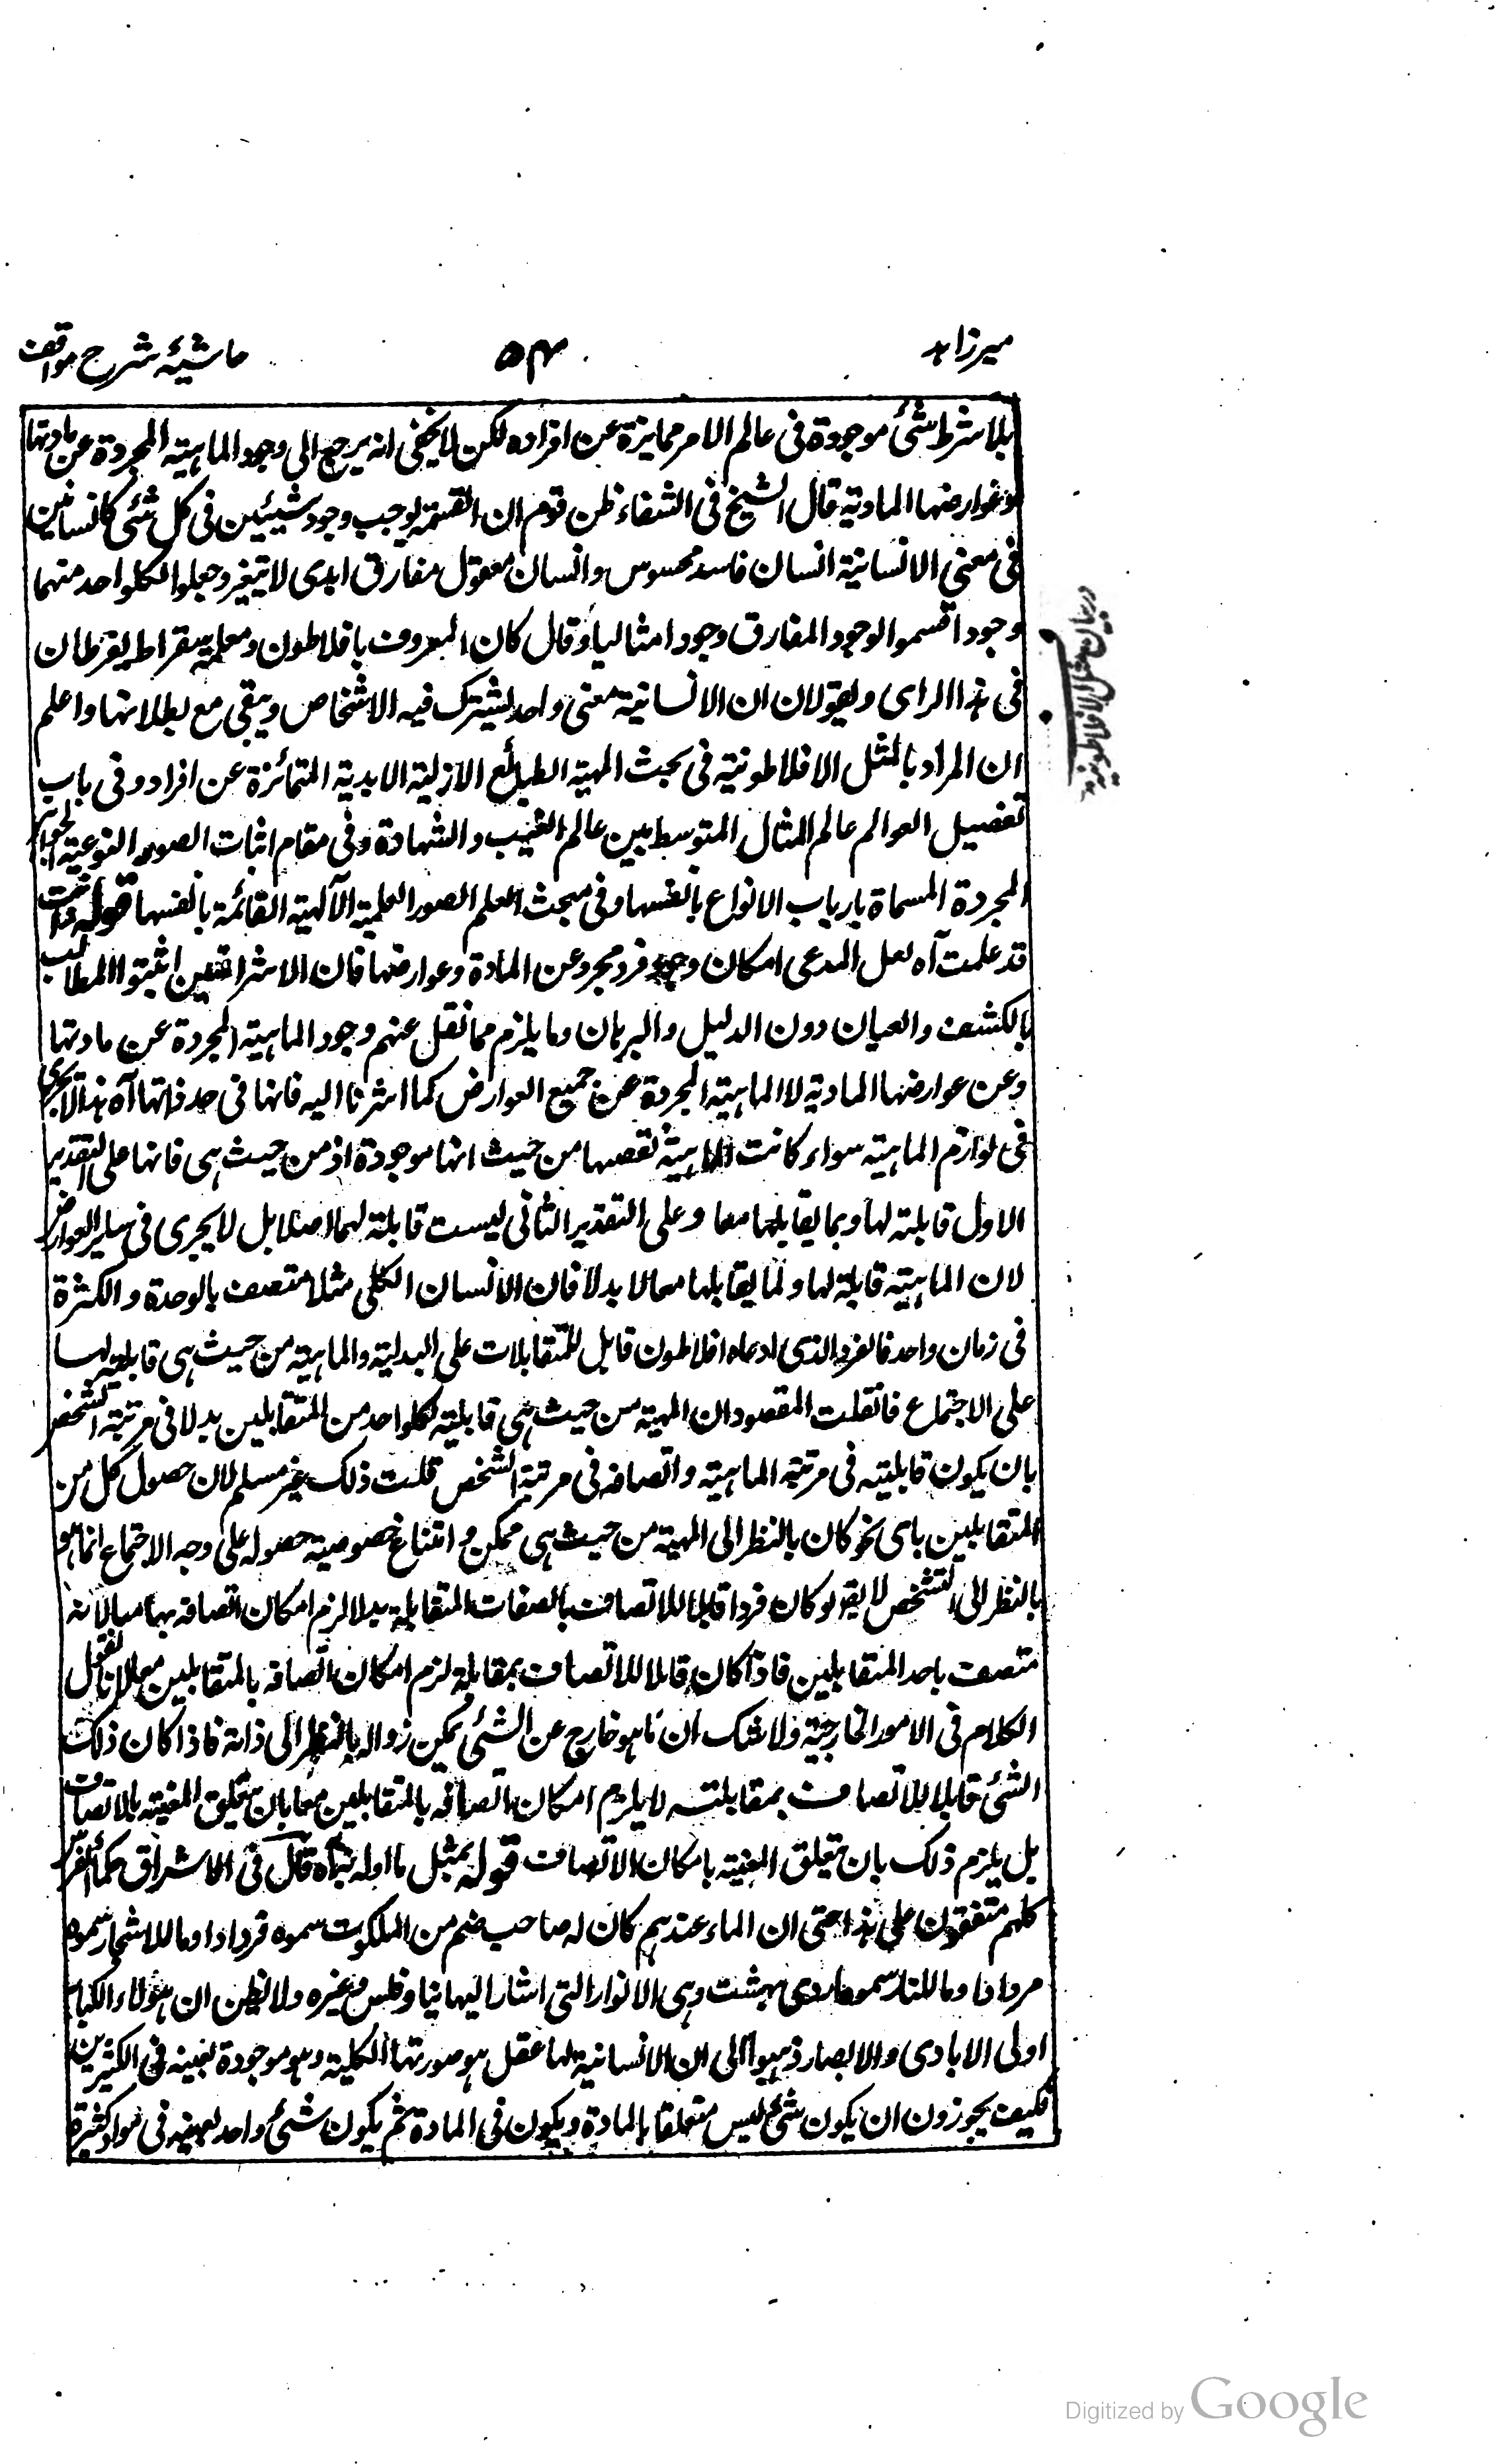 ميرزاہد
۵۴
حاشيۂ شرح مواقف
بلا شرط شئ موجودة فى عالم الامر ممايزة عن افراده لكن لا يخفى انه يرجع الى وجود الماهية المجردة عن مادتها
وعوارضها المادية قال الشيخ فى الشفاء ظن قوم ان القسمة يوجب وجود شيئين فى كل شئ كانسانين
فى معنى الانسانية انسان فاسد محسوس وانسان معقول مفارق ابدى لا يتغير وجعلوا لكلواحد منهما
وجودا قسموا الوجود المفارق وجودا مثاليا وقال كان المعروف بافلاطون ومعلمه سقراط يفرطان
فى هذا الراى ويقولان ان الانسانية معنى واحد يشترك فيه الاشخاص ويبقى مع بطلانها واعلم
ان المراد بالمثل الافلاطونية فى بحث المهية الطبائع الازلية الابدية المتمائزة عن افراد وفى باب
تفصيل العوالم عالم المثال المتوسط بين عالم الغيب والشهادة وفى مقام اثبات الصور النوعية الجواهر
المجردة المسماة بارباب الانواع بانفسها وفى مبحث العلم الصور العلمية الآلهية القائمة بانفسها قوله وانت
قد علمت آه لعل المدعى امكان وجود فرد مجرد عن المادة وعوارضها فان الاشراقيين اثبتوا المطالب
بالكشف والعيان دون الدليل والبرهان وما يلزم مما نقل عنهم وجود الماهية المجردة عن مادتها
وعن عوارضها المادية لا الماهية المجردة عن جميع العوارض كما اشرنا اليه فانها فى حد ذاتها آه هذا لا يجرى
فى لوازم الماهية سواء كانت الماهية تقتضيها من حيث انها موجودة او من حيث هى فانها على التقدير
الاول قابلة لها وبما يقابلها معا وعلى التقدير الثانى ليست قابلة لهما اصلا بل لا يجرى فى ساير العوارض
لان الماهية قابلة لها ولما يقابلها معا لا بدلا فان الانسان الكلى مثلا متصف بالوحدة والكثرة
فى زمان واحد فالفرد الذى ادعاه افلاطون قابل للمتقابلات على البدلية والماهية من حيث هى قابلة لها
على الاجتماع فانقلت المقصود ان المهية من حيث هى قابلية لكلواحد من المتقابلين بدلا فى مرتبة التشخص
بان يكون قابليته فى مرتبة الماهية واتصافه فى مرتبة الشخص قلت ذلك غير مسلم لان حصول كل من
المتقابلين باى نحو كان بالنظر الى المهية من حيث هى ممكن وامتناع خصوصية حصوله على وجه الاجتماع انما هو
بالنظر الى التشخص لا يقه لو كان فردا قابلا للاتصاف بالصفات المتقابلة بدلا لزم امكان اتصافه بهما معا لانه
متصف باحد المتقابلين فاذا كان قابلا للاتصاف بمقابله لزم امكان اتصافه بالمتقابلين معا لانا نقول
الكلام فى الامور الخارجية ولا شك ان ما هو خارج عن الشئ يمكن زواله بالنظر الى ذاته فاذا كان ذلك
الشئ قابلا للاتصاف بمقابلته لا يلزم امكان اتصافه بالمتقابلين معا بان يتعلق المعية بالاتصاف
بل يلزم ذلك بان يتعلق المعية بامكان الاتصاف قوله بمثل ما اوله آه قال فى الاشراق حكماء الفرس
كلهم متفقون على هذا حتى ان الماء عندهم كان له صاحب صنم من الملكوت سموه خرداد وما للاشجار سموه
مرداد وما للنار سموه اردى بهشت وهى الانوار التى اشار اليها انباذقلس وغيره ولا تظن ان هؤلاء الكبار
اولى الايادى والابصار ذهبوا الى ان الانسانية لها عقل هو صورتها الكلية وهو موجودة بعينه فى الكثيرين
فكيف يجوزون ان يكون شئ ليس متعلقا بالمادة ويكون فى المادة ثم يكون شئ واحد بعينه فى مواد كثيرة
Digitized by Google